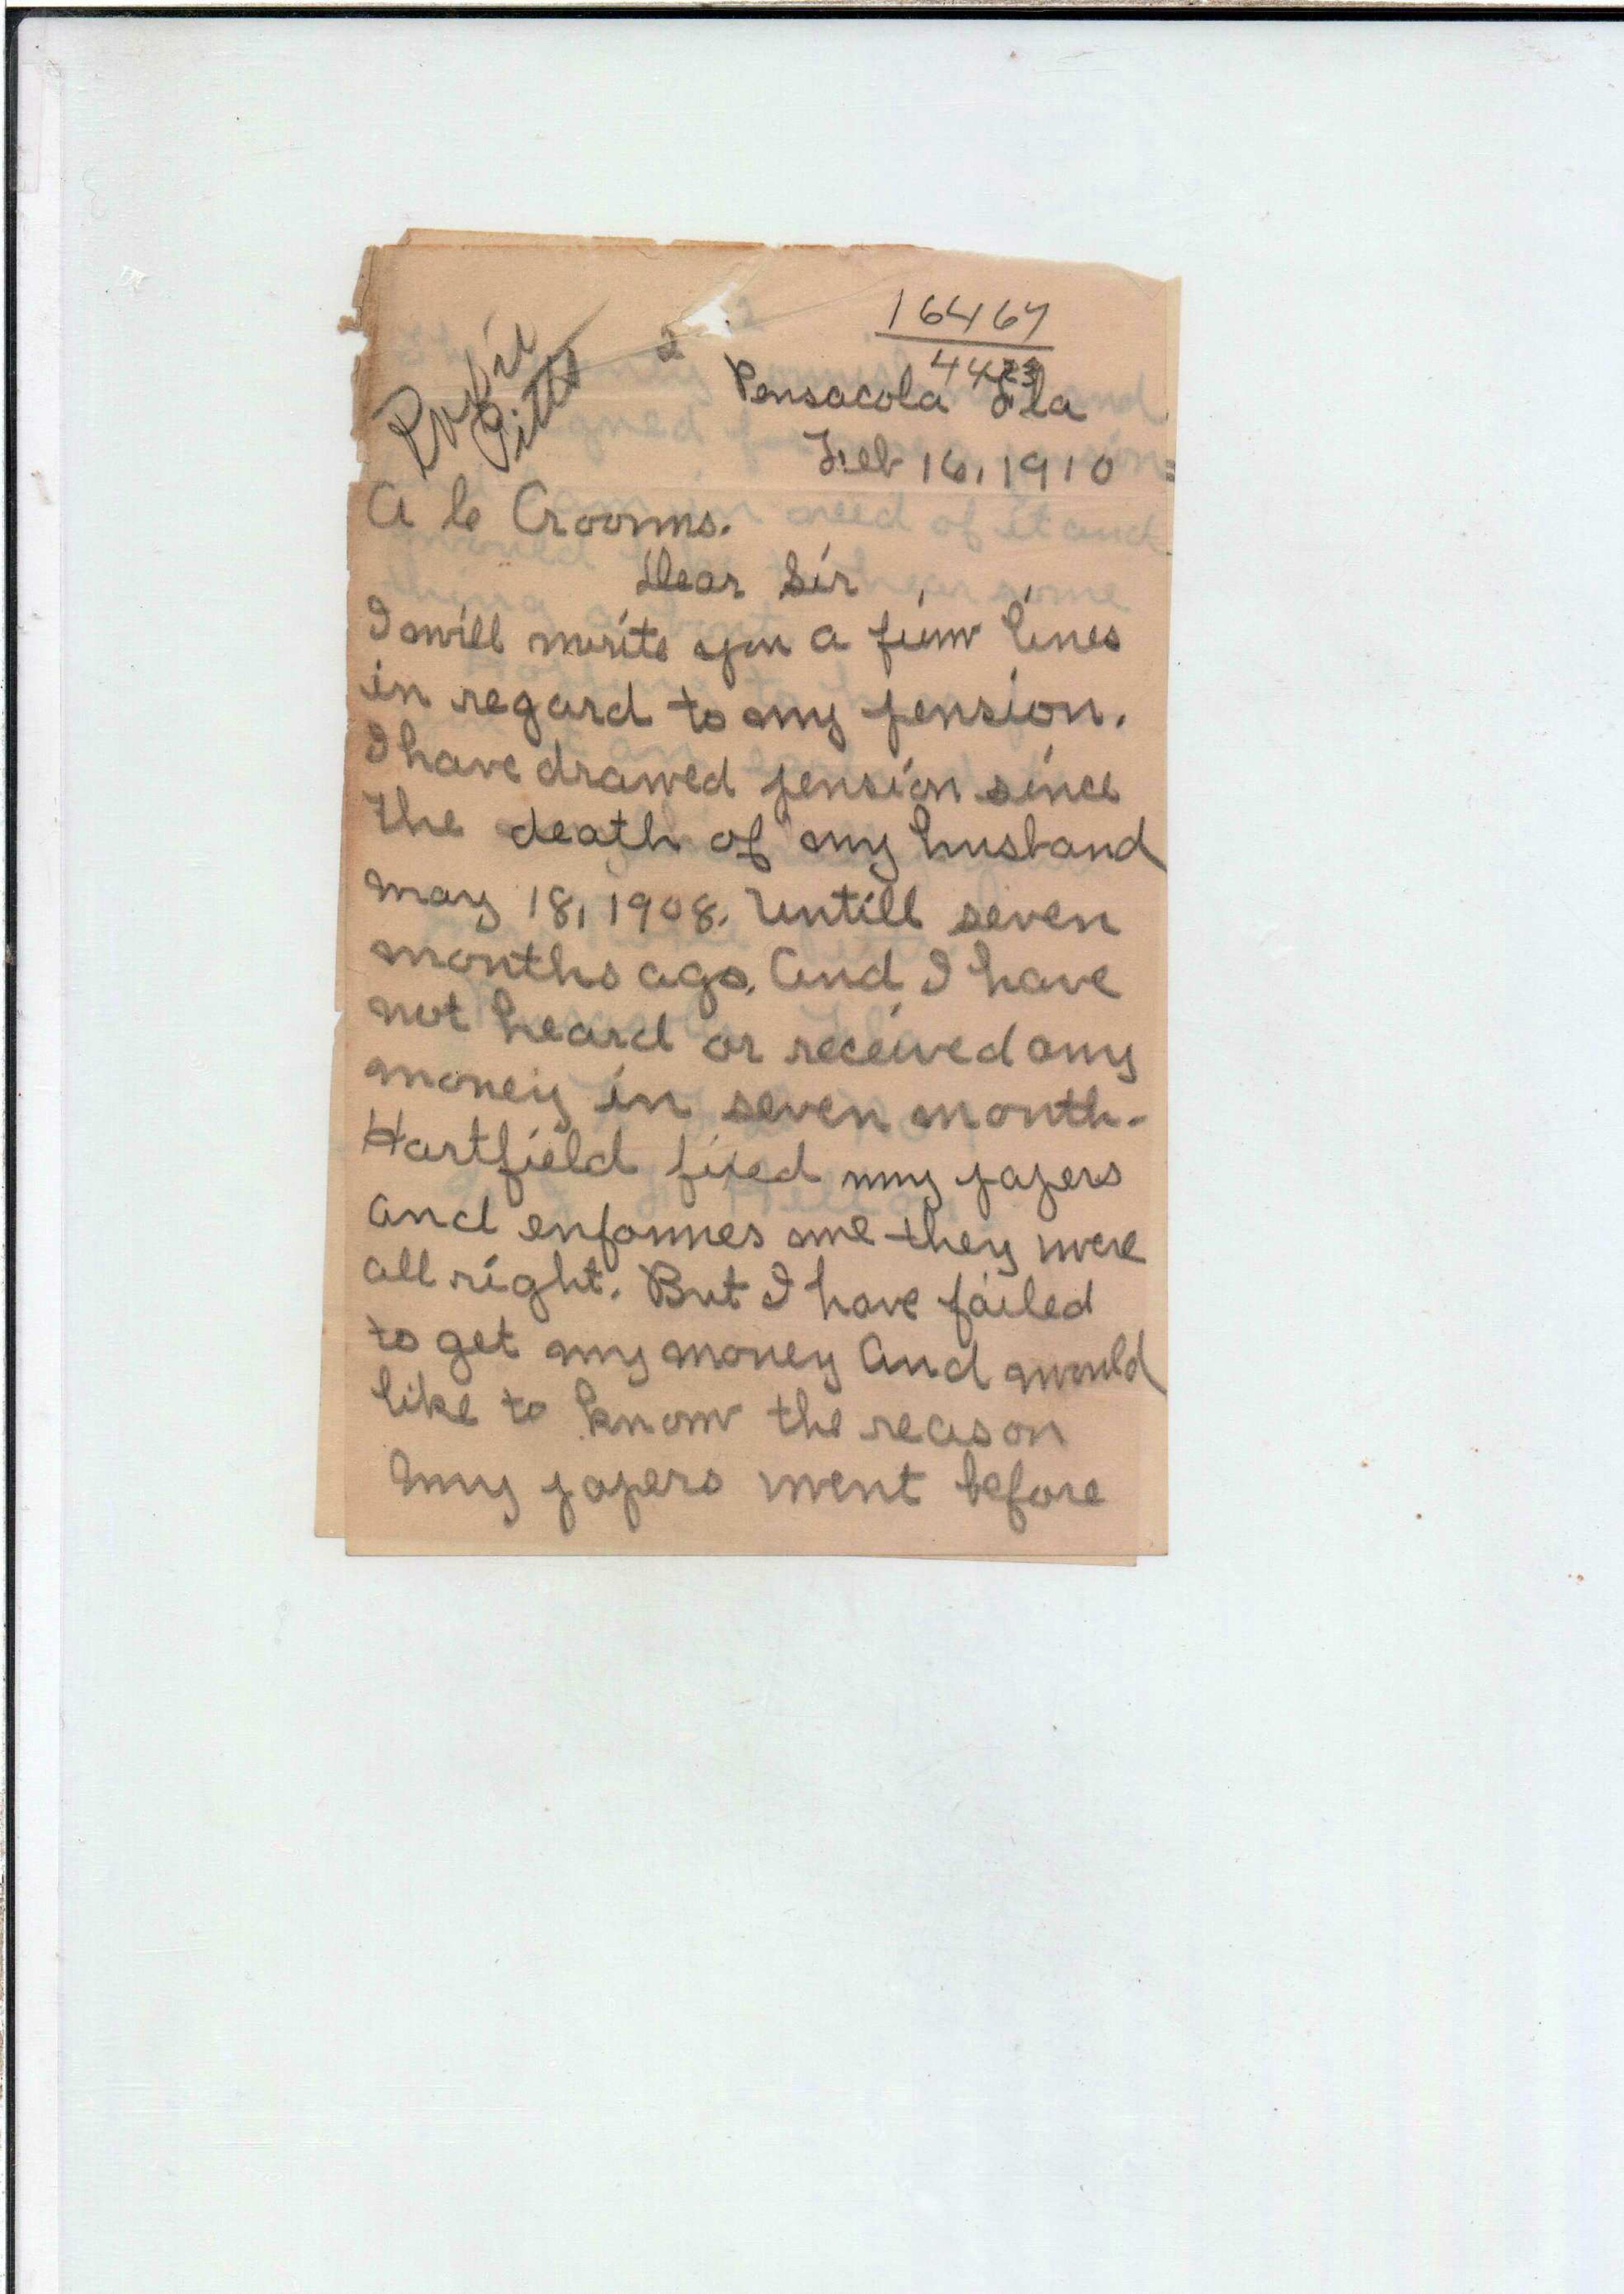 Pitts
16467
4423
Pensacola Fla
Feb 16, 1910
A C Crooms.
Dear Sir
I will write you a fiew lines
in regard to my pension.
I have drawed pension since
the death of my husband
May 18, 1908. Untill seven
months ago. And I have
not heard or received any
money in seven month.
Hartfield fixed my papers
and enformes me they were
all right. But I have failed
to get my money And would
like to know the reason
my papers went before